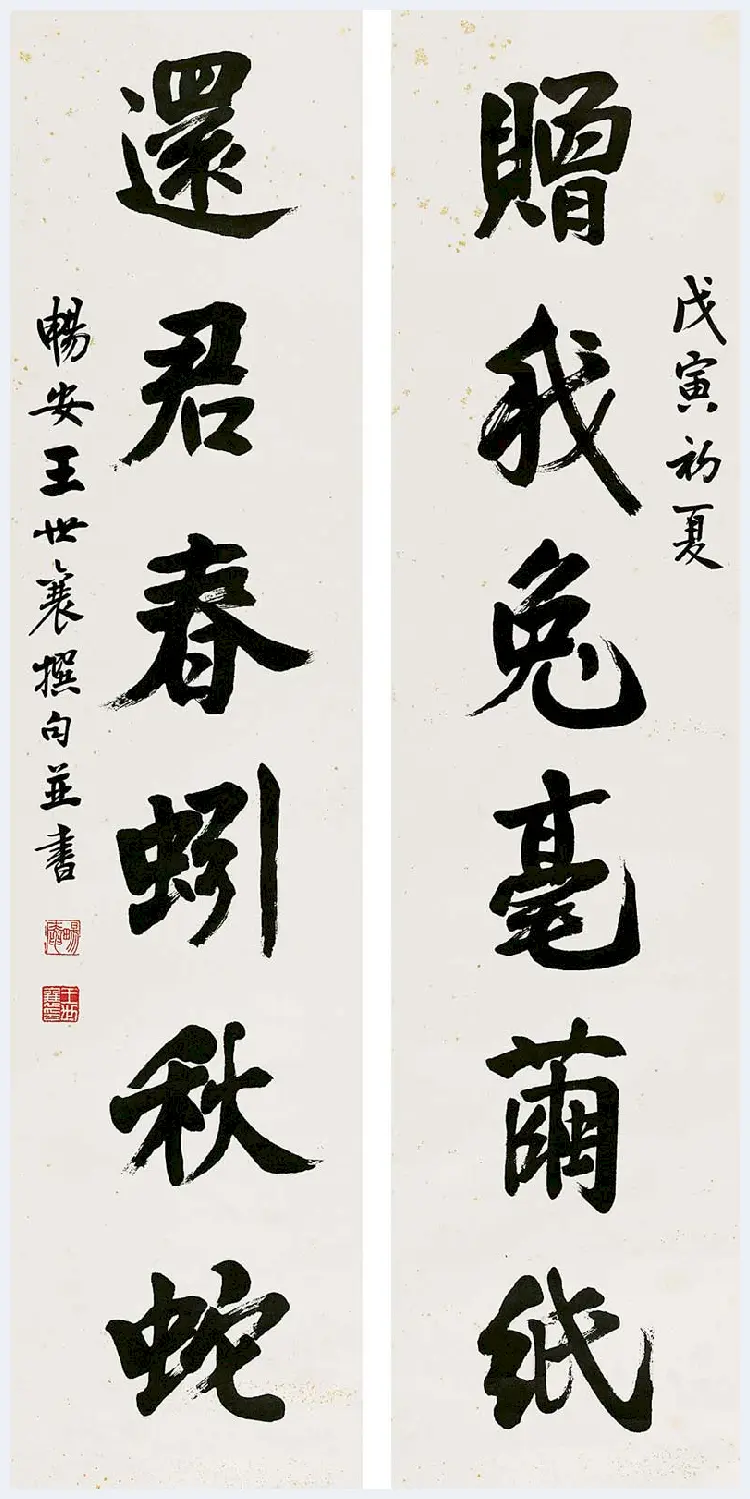 戊寅初夏
贈我兔毫繭紙
還君春蚓秋蛇
暢安王世襄撰句並書
暢安
王世襄